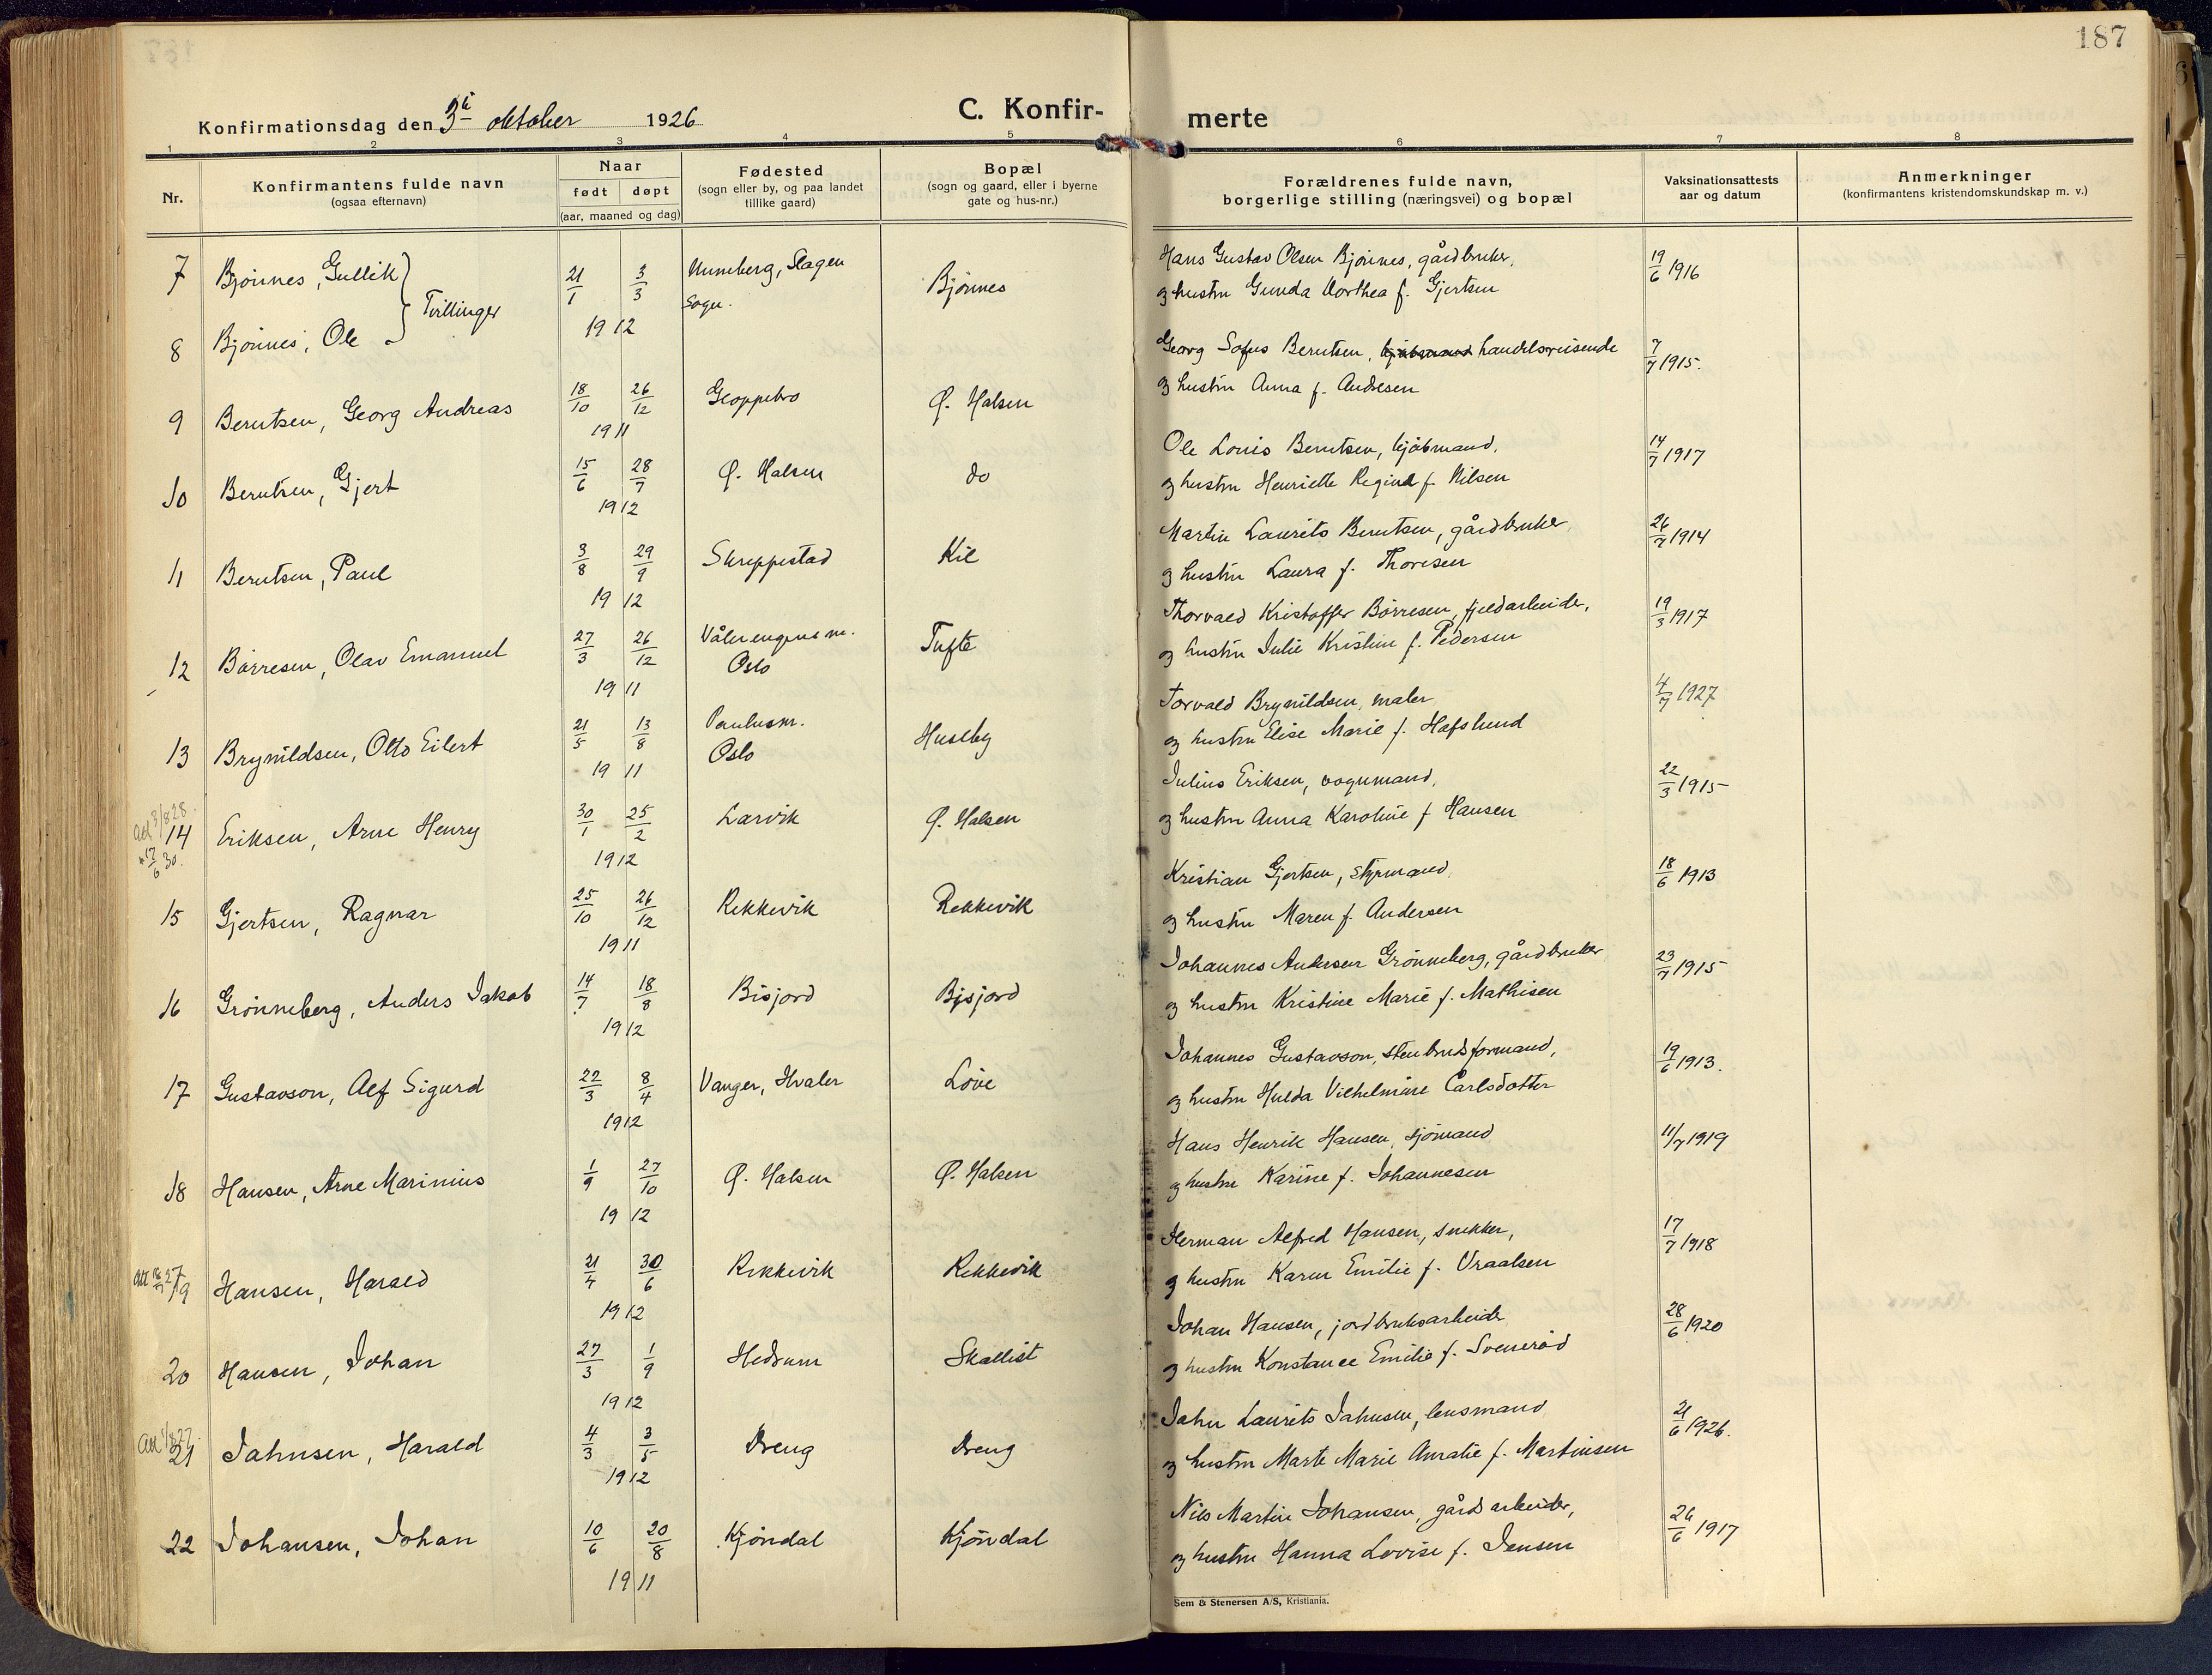 187
Konfirmationsdag den 3di oktober 1926
C. Konfir-
merte
1 2 3 4 5 6 7 8
Nr.
Konfirmantens fulde navn
(ogsaa efternavn)
Naar
født døpt
(aar, maaned og dag)
Fødested
(sogn eller by, og paa landet
tillike gaard)
Bopæl
(sogn og gaard, eller i byerne
gate og hus-nr.)
Forældrenes fulde navn,
borgerlige stilling (næringsvei) og bopæl
Vaksinationsattests
aar og datum
Anmerkninger
(konfirmantens kristendomskundskap m. v.)
7 Bjønnes, Gullik } Tvillinger 21/1 3/3 1912 Unneberg, Slagen Sogn. Bjønnes
Hans Gustav Olsen Bjønnes, gårdbruker, 19/6 1916
og hustru Gunda Dorthea f. Gjertsen
8 Bjønnes, Ole
9 Berntsen, Georg Andreas 18/10 26/12 1911 Gloppebro Ø. Halsen
Georg Sofus Berntsen, handelsreisende 7/7 1915.
og hustru Anna f. Andresen
10 Berntsen, Gjert 15/6 28/7 1912 Ø. Halsen do
Ole Louis Berntsen, kjøbmand, 14/7 1917
og hustru Henriette Regine f. Nilsen
11 Berntsen, Paul 3/8 29/9 1912 Skreppestad Kil
Martin Laurits Berntsen, gårdbruker 26/7 1914
og hustru Laura f. Thoresen
12 Børresen, Olav Emanuel 27/3 26/12 1911 Vålerengens m. Oslo Tufte
Thorvald Kristoffer Børresen, fjeldarbeider, 19/3 1917
og hustru Julie Kristine f. Pedersen
13 Brynildsen, Otto Eilert 21/5 13/8 1911 Paulusm. Oslo Huseby
Torvald Brynildsen, maler 4/7 1927
og hustru Elise Marie f. Hafslund
Att 3/8 28.
14 Eriksen, Arne Henry 30/1 25/2 1912 Larvik Ø. Halsen
+ 17/6 30.
Julius Eriksen, vognmand, 22/3 1915
og hustru Anna Karoline f. Hansen
15 Gjertsen, Ragnar 25/10 26/12 1911 Rekkevik Rekkevik
Kristian Gjertsen, styrmand, 18/6 1913
og hustru Maren f. Andersen
16 Grønneberg, Anders Jakob 14/7 18/8 1912 Bisjord Bisjord
Johannes Andersen Grønneberg, gårdbruker 23/7 1915
og hustru Kristine Marie f. Mathisen
17 Gustavson, Alf Sigurd 22/3 8/4 1912 Vanger, Hvaler Løve
Johannes Gustavson, stenbrudsformand, 19/6 1913.
og hustru Hulda Vilhelmine Carlsdotter
18 Hansen, Arne Marinius 1/9 27/10 1912 Ø. Halsen Ø. Halsen
Hans Henrik Hansen, sjømand 11/7 1919
og hustru Karine f. Johannesen
Att 27
19 Hansen, Harald 21/4 30/6 1912 Rekkevik Rekkevik
Herman Alfred Hansen, snekker, 17/7 1918
og hustru Karen Emilie f. Vraalsen
20 Hansen, Johan 27/3 1/9 1912 Hedrum Skallist
Johan Hansen, jordbruksarbeider 28/6 1920
og hustru Konstance Emilie f. Svenerød
Att 27.
21 Jahnsen, Harald 4/3 3/5 1912 Dreng Dreng
Jahn Laurits Jahnsen, lensmand 21/6 1926.
og hustru Marte Marie Amalie f. Martinsen
22 Johansen, Johan 10/6 20/8 1911 Kjøndal Kjøndal
Nils Martin Johansen, gårdsarbeider, 26/6 1917
og hustru Hanna Lovise f. Jensen
Sem & Stenersen A/S, Kristiania.